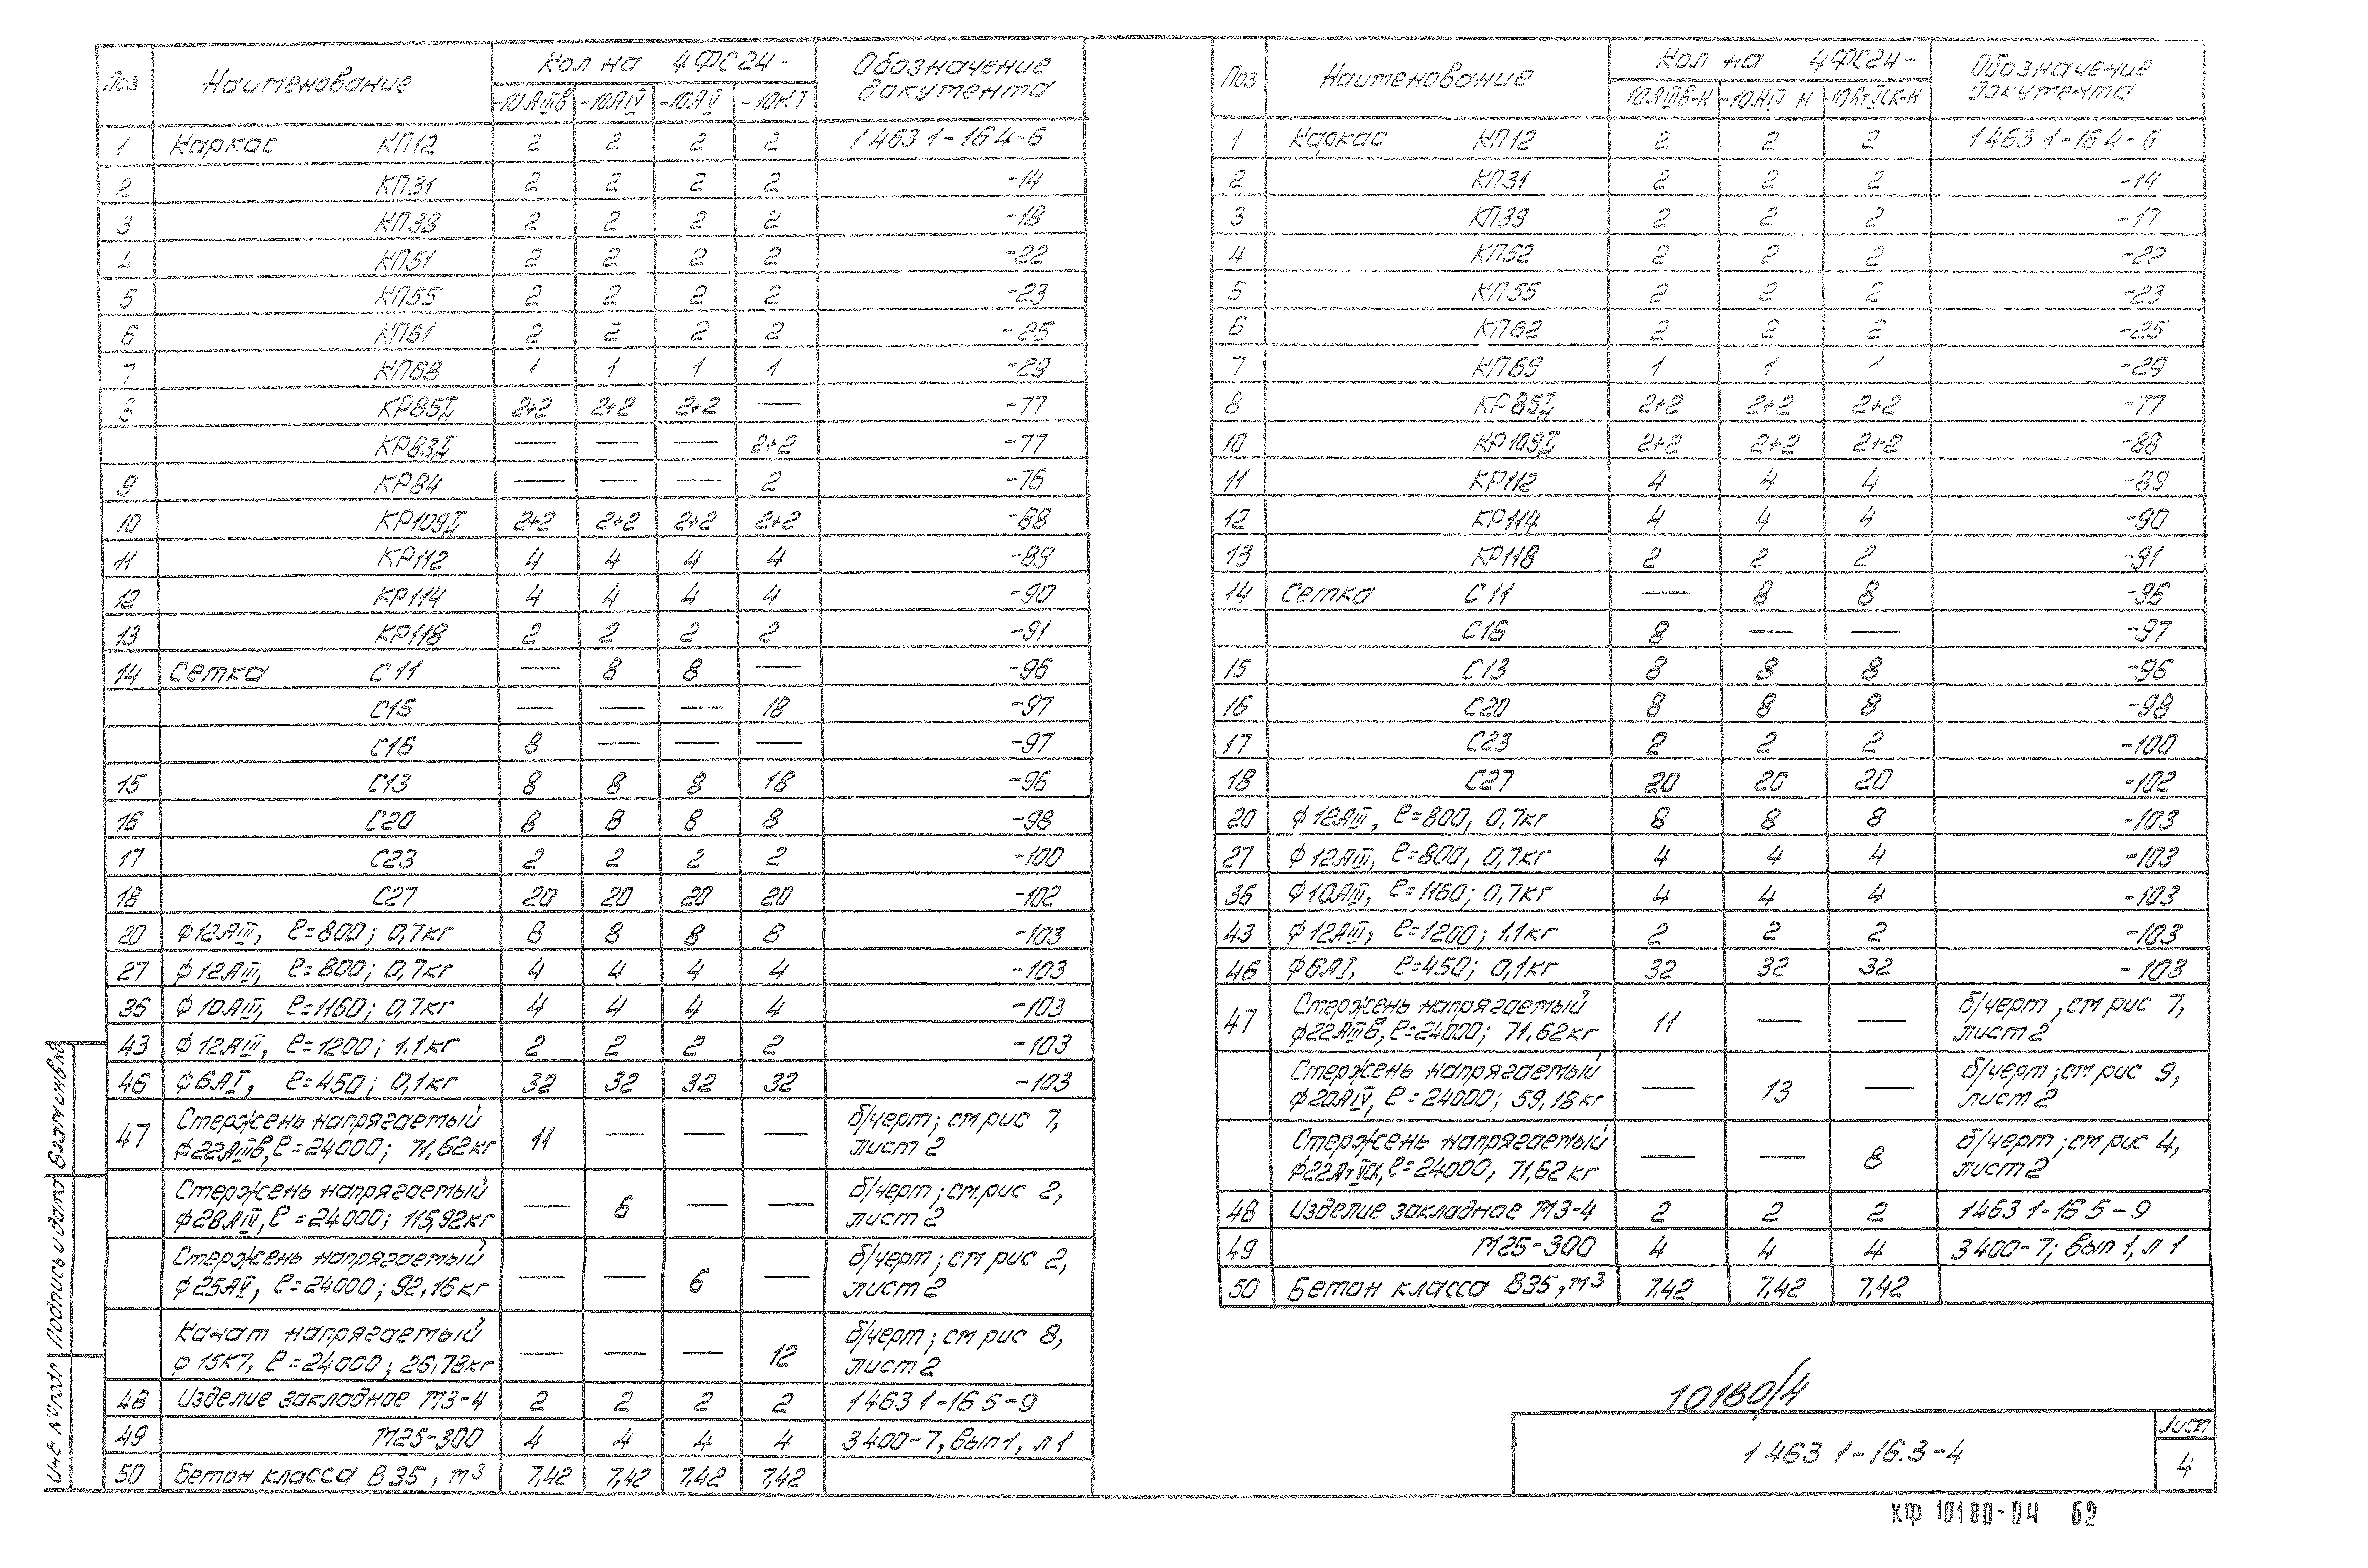 Поз Наименование Кол на 4ФС24- Обозначение документа
-10АIIIв -10АIV -10АV -10К7
1 Каркас КП12 2 2 2 2 1 463 1-16 4-6
2 КП31 2 2 2 2 -14
3 КП38 2 2 2 2 -18
4 КП51 2 2 2 2 -22
5 КП55 2 2 2 2 -23
6 КП61 2 2 2 2 -25
7 КП68 1 1 1 1 -29
8 КР85Т,Н 2+2 2+2 2+2 — -77
КР83Т,Н — — — 2+2 -77
9 КР84 — — — 2 -76
10 КР109Т,Н 2+2 2+2 2+2 2+2 -88
11 КР112 4 4 4 4 -89
12 КР114 4 4 4 4 -90
13 КР118 2 2 2 2 -91
14 Сетка С11 — 8 8 — -96
С15 — — — 18 -97
С16 8 — — — -97
15 С13 8 8 8 18 -96
16 С20 8 8 8 8 -98
17 С23 2 2 2 2 -100
18 С27 20 20 20 20 -102
20 ф12АIII, ℓ=800; 0,7кг 8 8 8 8 -103
27 ф12АIII, ℓ=800; 0,7кг 4 4 4 4 -103
36 ф10АIII, ℓ=1160; 0,7кг 4 4 4 4 -103
43 ф12АIII, ℓ=1200; 1.1кг 2 2 2 2 -103
46 ф6АI, ℓ=450; 0,1кг 32 32 32 32 -103
47 Стержень напрягаемый
ф22АIIIв, ℓ=24000; 71,62кг 11 — — — б/черт; см рис 7, лист 2
Стержень напрягаемый
ф28АIV, ℓ=24000; 115,92кг — 6 — — б/черт; см.рис 2, лист 2
Стержень напрягаемый
ф25АV, ℓ=24000; 92,16кг — — 6 — б/черт; см рис 2, лист 2
Канат напрягаемый
ф15К7, ℓ=24000; 26,78кг — — — 12 б/черт; см рис 8, лист 2
48 Изделие закладное М3-4 2 2 2 2 1 463 1-16 5-9
49 М25-300 4 4 4 4 3 400-7, вып 1, л 1
50 Бетон класса В35, м3 7,42 7,42 7,42 7,42
Поз Наименование Кол на 4ФС24- Обозначение документа
10АIIIв-Н -10АIV Н -10АтVСК-Н
1 Каркас КП12 2 2 2 1 463 1-16 4-6
2 КП31 2 2 2 -14
3 КП39 2 2 2 -17
4 КП52 2 2 2 -22
5 КП55 2 2 2 -23
6 КП62 2 2 2 -25
7 КП69 1 1 1 -29
8 КР85Т,Н 2+2 2+2 2+2 -77
10 КР109Т,Н 2+2 2+2 2+2 -88
11 КР112 4 4 4 -89
12 КР114 4 4 4 -90
13 КР118 2 2 2 -91
14 Сетка С11 — 8 8 -96
С16 8 — — -97
15 С13 8 8 8 -96
16 С20 8 8 8 -98
17 С23 2 2 2 -100
18 С27 20 20 20 -102
20 ф12АIII, ℓ=800, 0,7кг 8 8 8 -103
27 ф12АIII, ℓ=800, 0,7кг 4 4 4 -103
36 ф10АIII, ℓ=1160; 0,7кг 4 4 4 -103
43 ф12АIII, ℓ=1200; 1.1кг 2 2 2 -103
46 ф6АI, ℓ=450; 0,1кг 32 32 32 -103
47 Стержень напрягаемый
ф22АIIIв, ℓ=24000; 71.62кг 11 — — б/черт, см рис 7, лист 2
Стержень напрягаемый
ф20АIV, ℓ=24000; 59,18кг — 13 — б/черт; см рис 9, лист 2
Стержень напрягаемый
ф22АтVСК, ℓ=24000, 71,62 кг — — 8 б/черт; см рис 4, лист 2
48 Изделие закладное М3-4 2 2 2 1463 1-16 5-9
49 М25-300 4 4 4 3 400-7; вып 1, л 1
50 Бетон класса В35, м3 7.42 7,42 7,42
10180/4
1 463 1-16.3-4
Лист
4
Взам инв.№
Подпись и дата
Инв № подл
КФ 10180-04 62